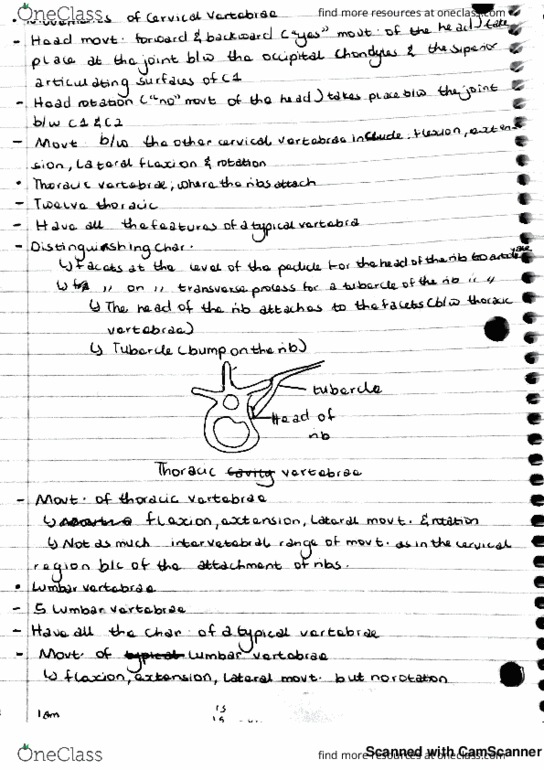 OneClass
find more resources at oneclass.com
Movements of Cervical Vertebrae
- Head movt. forward & backward ("yes" movt. of the head) take
place at the joint b/w the occipital Chondyles & the superior
articulating surfaces of C1
- Head rotation ("no" movt of the head) takes place b/w the joint
b/w C1 & C2
- Movt. b/w the other cervical vertebrae include: flexion, exten-
sion, Lateral flexion & rotation
• Thoracic vertebrae; where the ribs attach
- Twelve thoracic
- Have all the features of a typical vertebra
- Distinguishing char.
↳ facets at the level of the pedicle for the head of the rib to articulate
↳ " on " transverse process for a tubercle of the rib " "
↳ The head of the rib attaches to the facets (b/w thoracic
vertebrae)
↳ Tubercle (bump on the rib)
tubercle
Head of
rib
Thoracic cavity vertebrae
- Movt. of thoracic vertebrae
↳ flexion, extension, Lateral movt. & rotation
↳ Not as much intervetebral range of movt. as in the cervical
region b/c of the attachment of ribs.
• Lumbar vertebrae
- 5 Lumbar vertebrae
- Have all the char. of a typical vertebrae
- Movt. of typical Lumbar vertebrae
↳ flexion, extension, Lateral movt. but no rotation
15
OneClass
find more resources at oneclass.com
Scanned with CamScanner